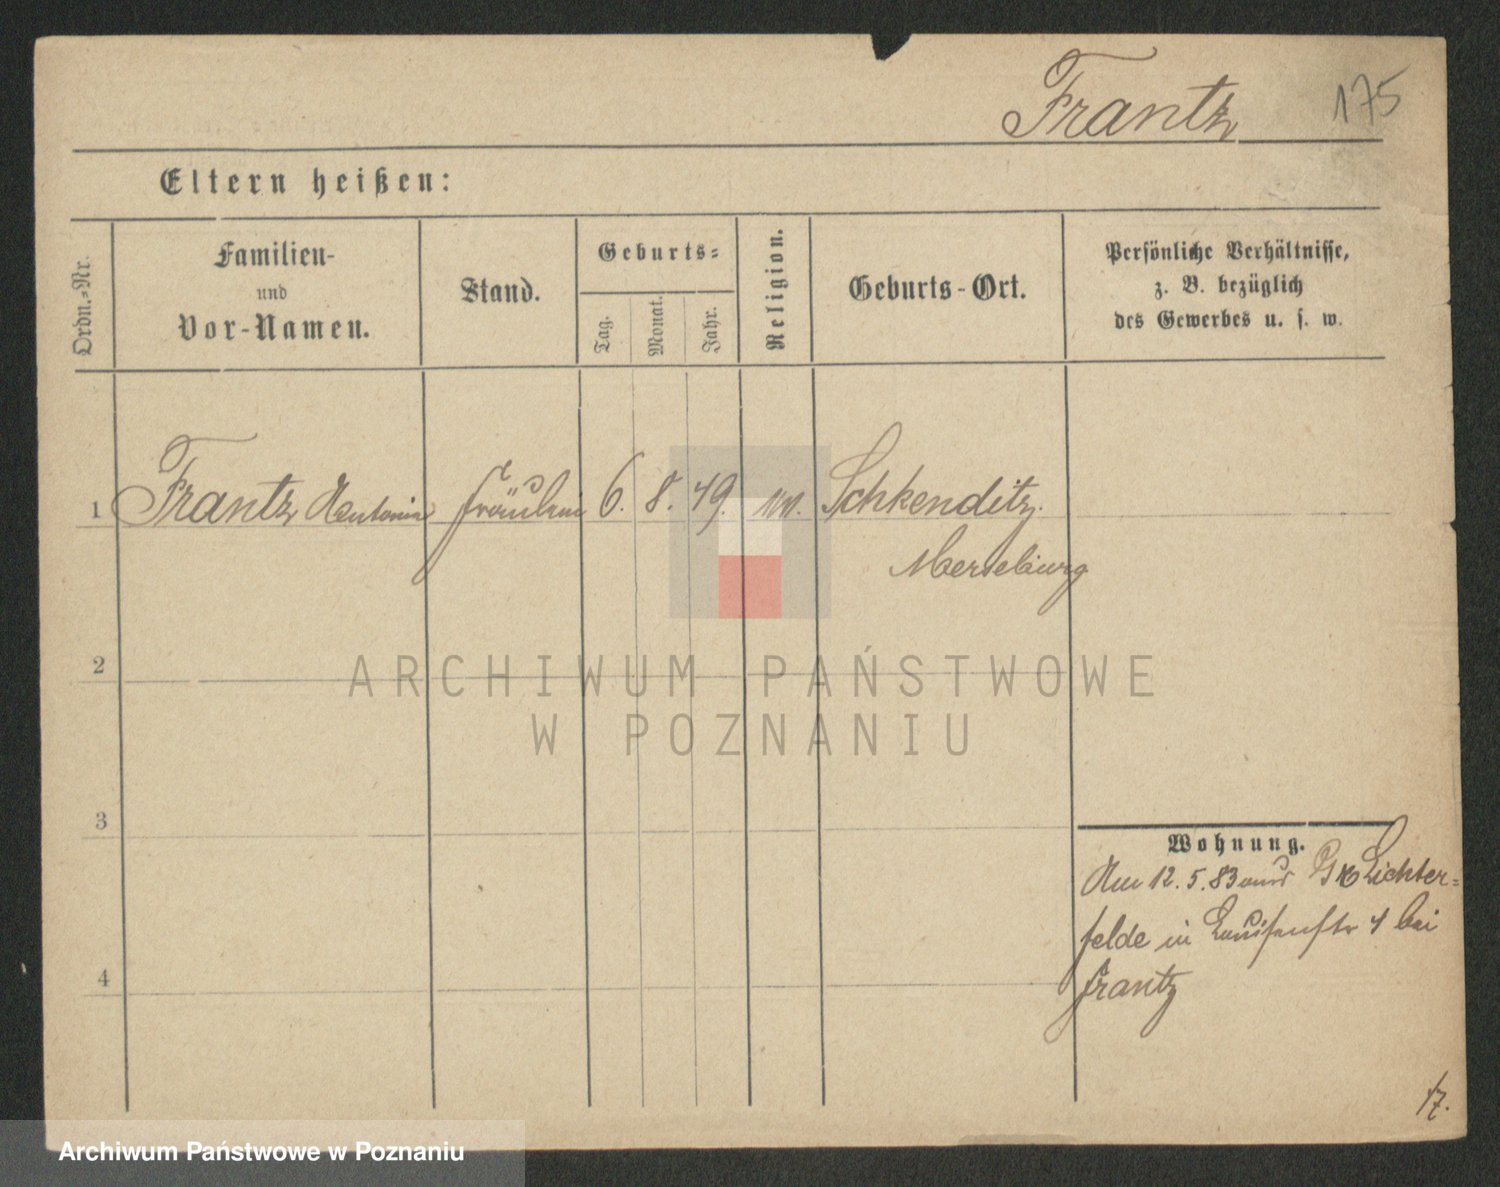 Frantz
175
Eltern heißen:
Ordn.-Nr.
Familien-
und
Vor-Namen.
Stand.
Geburts-
Tag.
Monat.
Jahr.
Religion.
Geburts-Ort.
Persönliche Verhältnisse,
z. B. bezüglich
des Gewerbes u. s. w.
1 Frantz Antonie Fräulein 6. 8. 49. Schkenditz.
Merseburg
ARCHIWUM PAŃSTWOWE
W POZNANIU
2
3
4
Wohnung.
Am 12. 5. 83 nach Gr Lichter=
felde in Louisenstr 4 bei
Frantz
17.
Archiwum Państwowe w Poznaniu